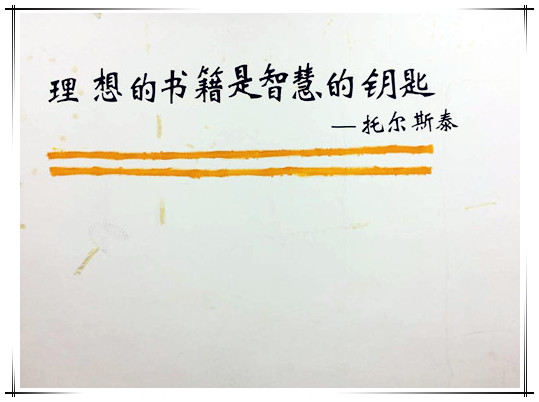 理想的书籍是智慧的钥匙
—托尔斯泰